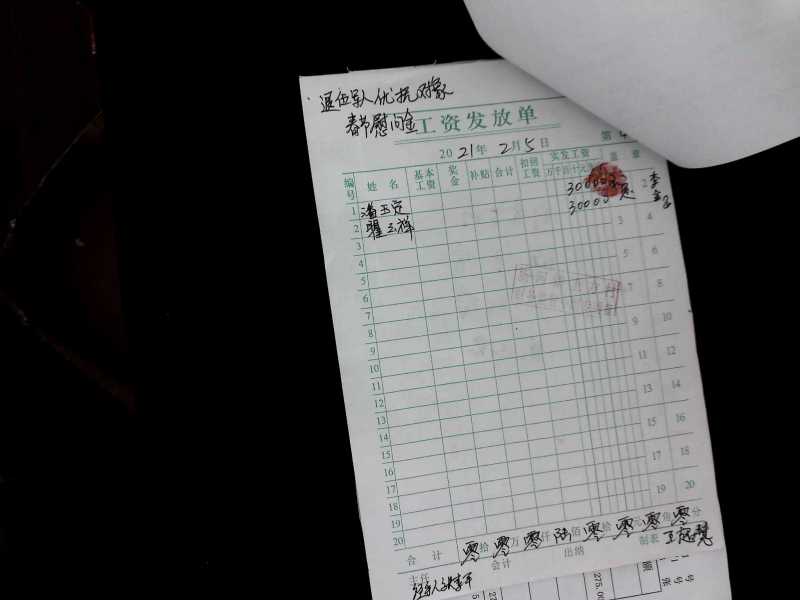 退伍军人优抚对象
春节慰问金
工资发放单
2021年2月5日 第4
编号 姓名 基本工资 奖金 补贴 合计 扣回工资 实发工资 盖章
万千百十元角分
1 潘玉定 30000 2 李
2 瞿玉祥 30000
3 3 4
4
5 5 6
6
7 7 8
8
9 9 10
10
11 11 12
12
13 13 14
14
15 15 16
16
17 17 18
18
19 19 20
20
合计 零拾零万零仟陆佰零拾零元零角零分
主任 会计 出纳 制表
经手人
275.00